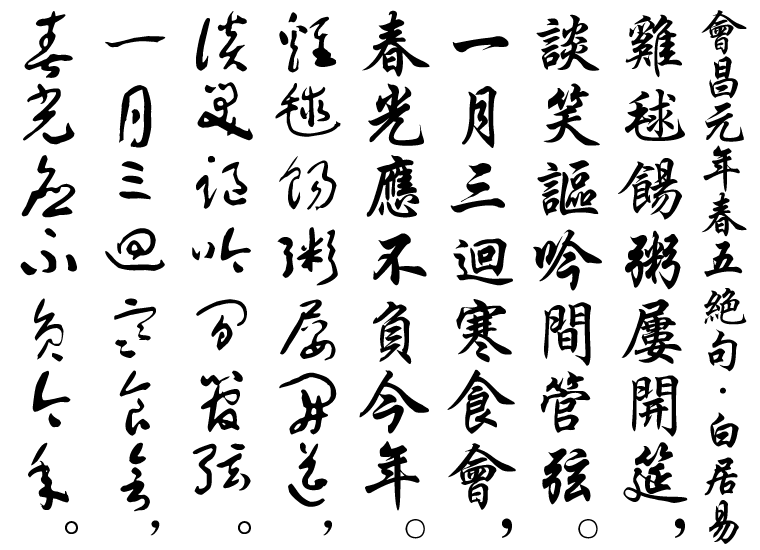 會昌元年春五絕句·白居易
雞毬餳粥屢開筵，
談笑謳吟間管弦。
一月三迴寒食會，
春光應不負今年。
雞毬餳粥屢開筵，
談笑謳吟間管弦。
一月三迴寒食會，
春光應不負今年。